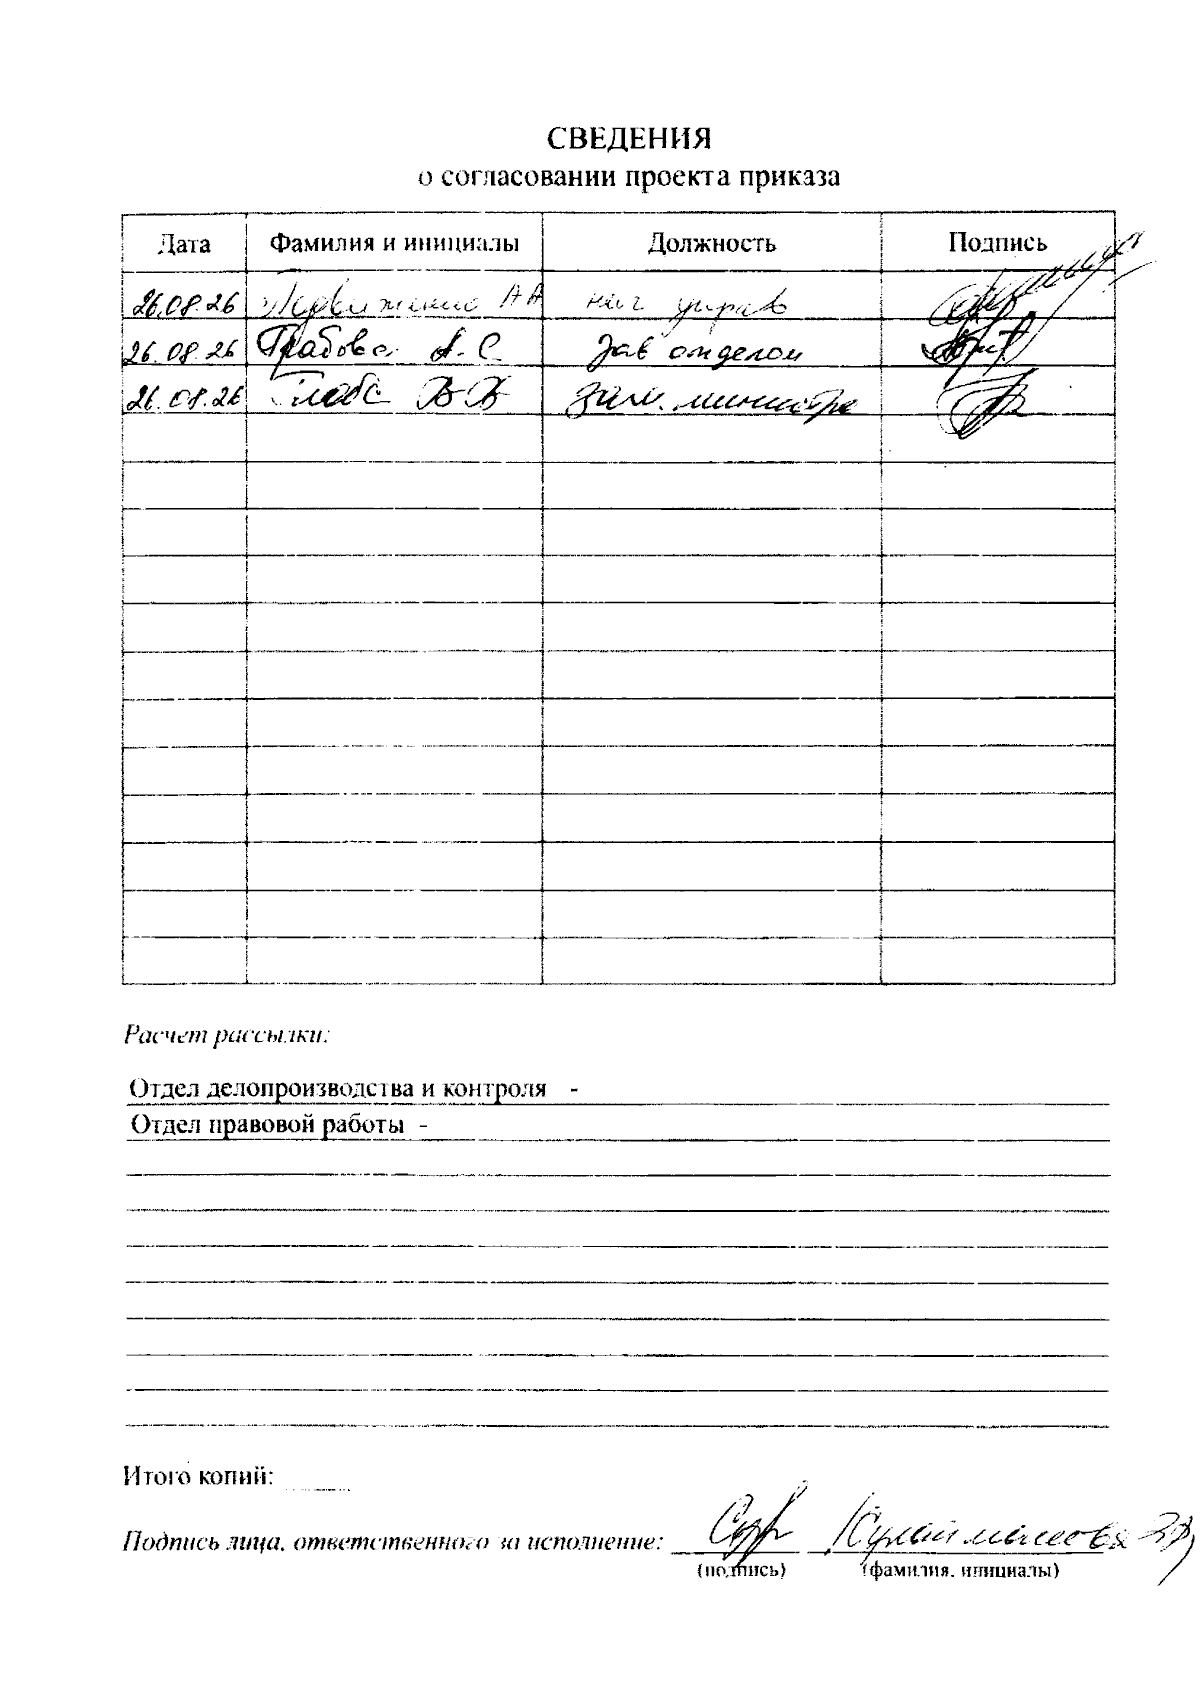 СВЕДЕНИЯ
о согласовании проекта приказа
Дата Фамилия и инициалы Должность Подпись
26.08.26 АА нач управ
26.08.26 Грабова А.С зав отделом
26.08.26 Глоба ВВ зам. министра
Расчет рассылки:
Отдел делопроизводства и контроля -
Отдел правовой работы -
Итого копий:
Подпись лица, ответственного за исполнение:
(подпись) (фамилия, инициалы)